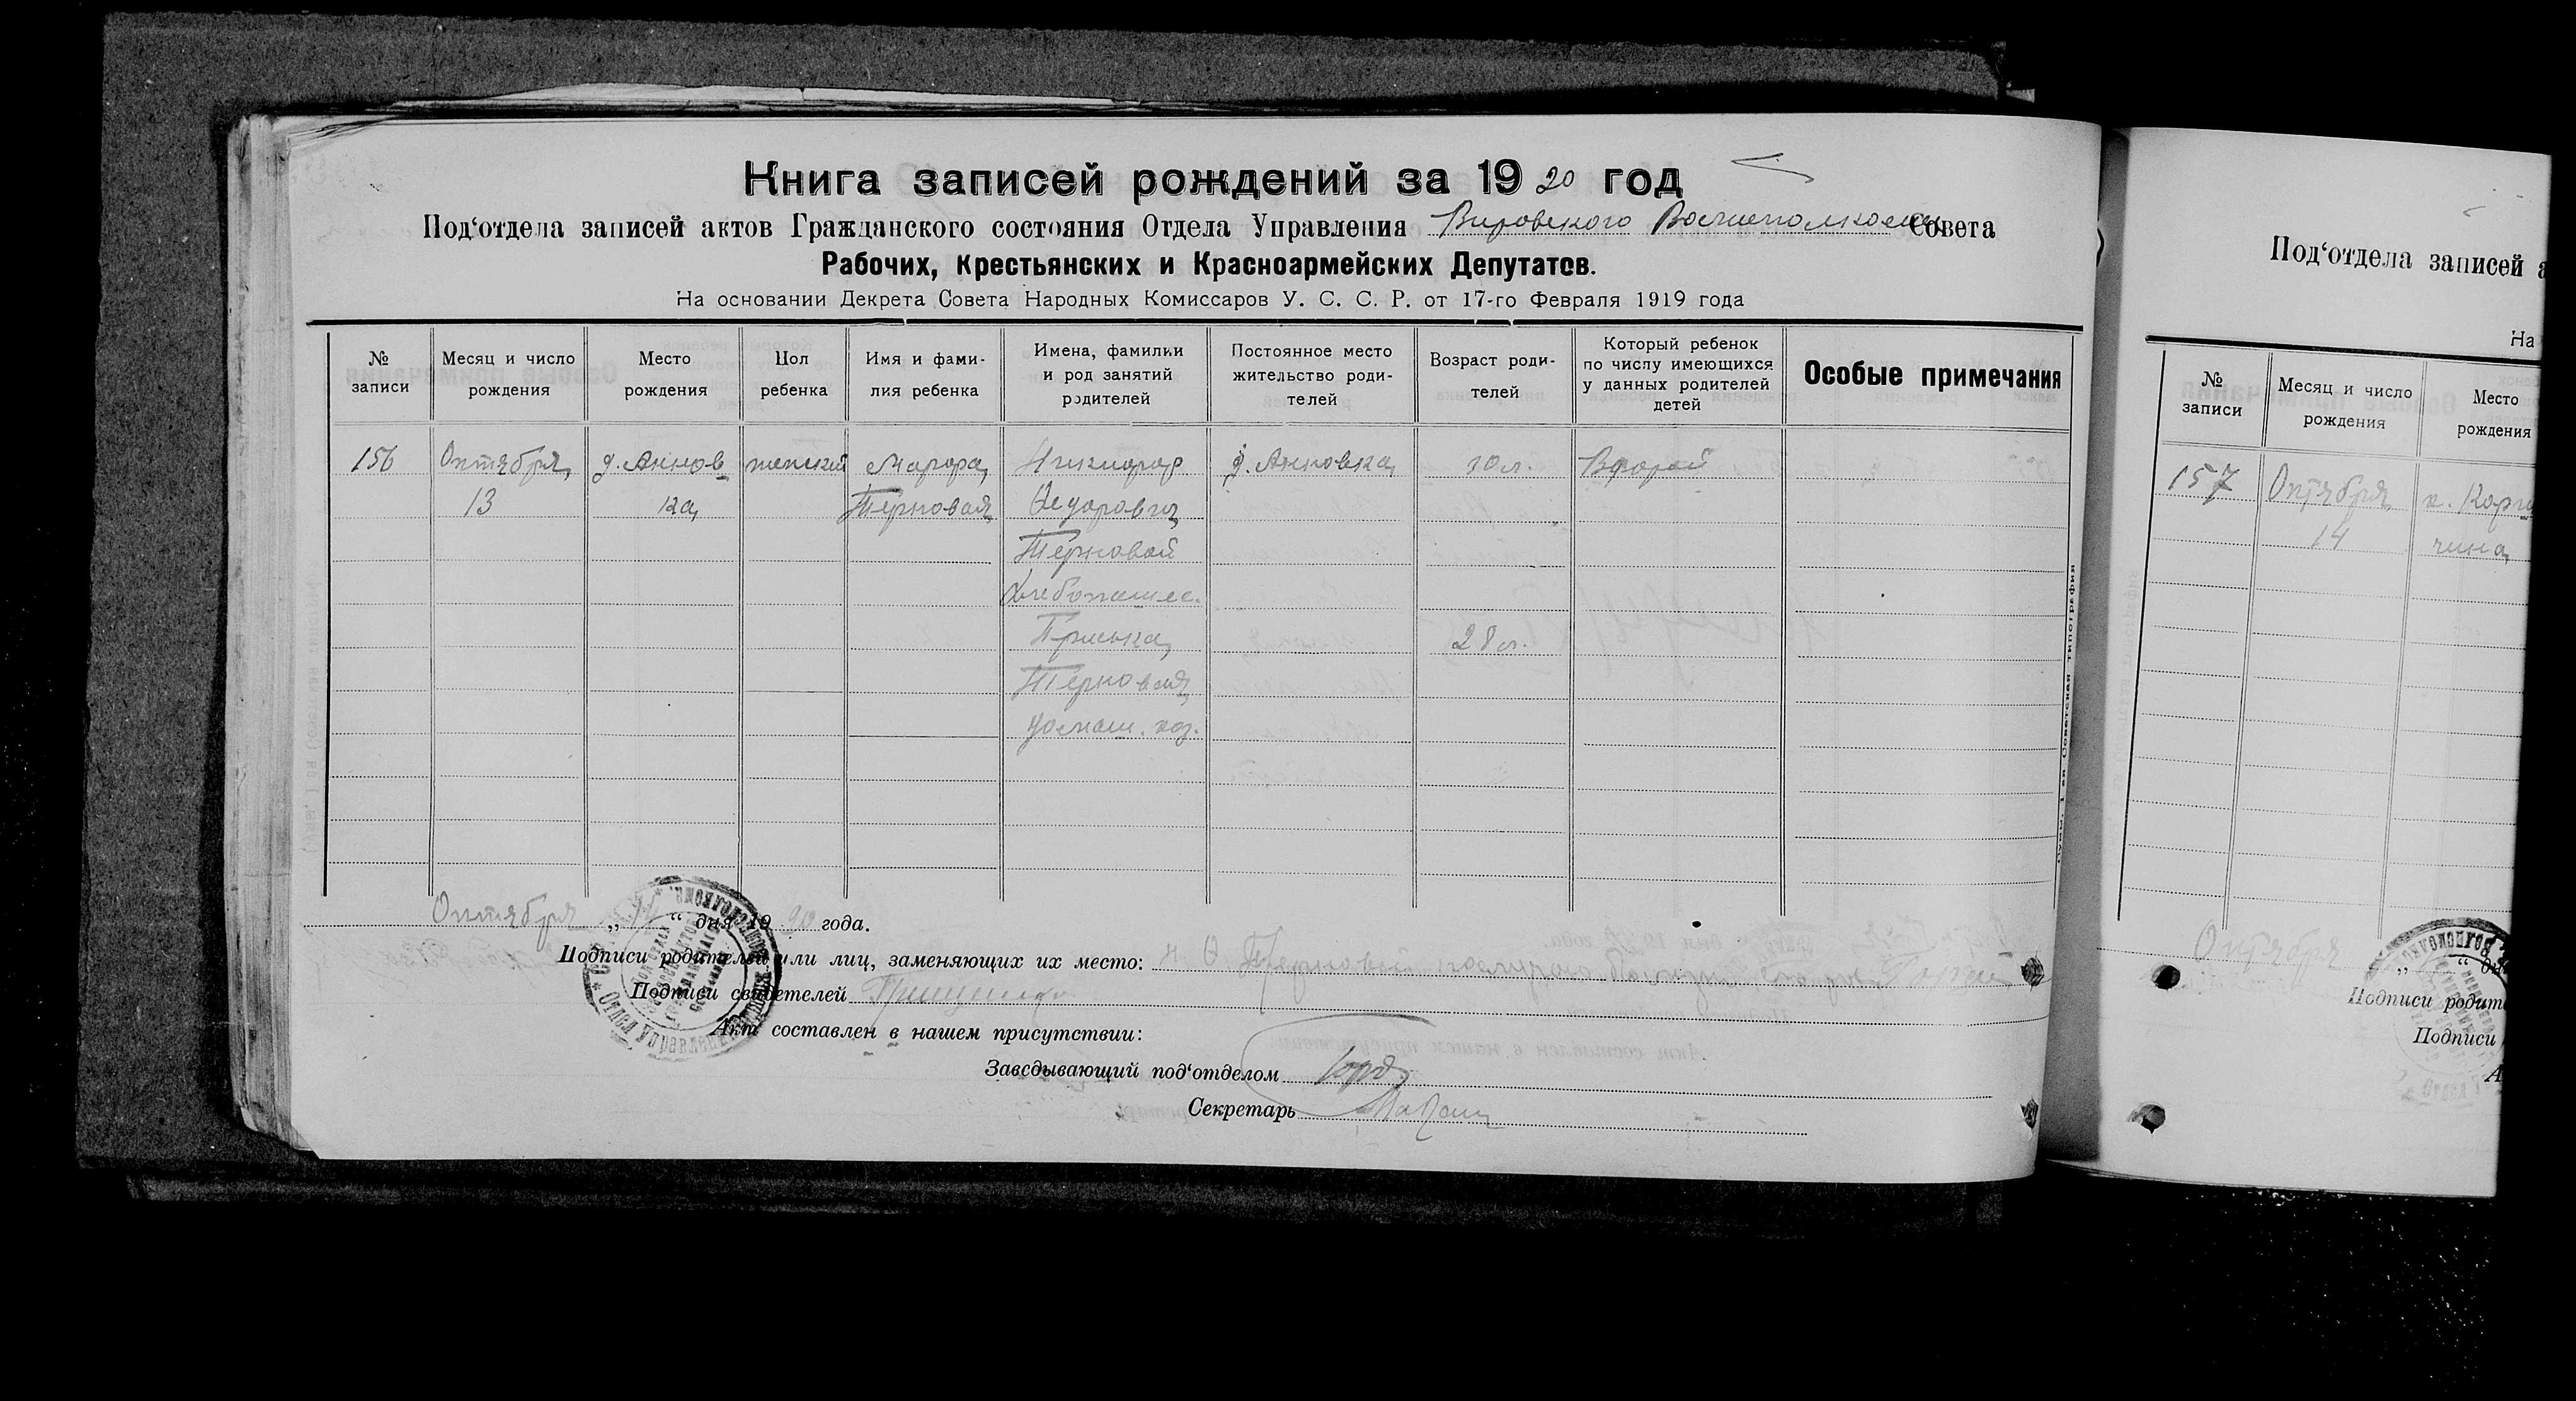 Книга записей рождений за 1920 год
Под‘отдела записей актов Гражданского состояния Отдела Управления Вировского Волисполкома Совета
Рабочих, Крестьянских и Красноармейских Депутатов.
На основании Декрета Совета Народных Комиссаров У. С. С. Р. от 17-го Февраля 1919 года
№ записи
Месяц и число рождения
Место рождения
Пол ребенка
Имя и фамилия ребенка
Имена, фамилии и род занятий родителей
Постоянное место жительство родителей
Возраст родителей
Который ребенок по числу имеющихся у данных родителей детей
Особые примечания
156 Октября д. Аннов женский Марфа Никифор д. Анновка 30 л. Второй
13 ка Терновая Федорович
Терновой
Хлебопашес.
Приська 28 л.
Терновая
домаш. хоз.
Октября „ “ дня 1920 года.
Подписи родителей или лиц, заменяющих их место: Н Ф Терновой
Подписи свидетелей Грищенко
Акт составлен в нашем присутствии:
Заведывающий под‘отделом
Секретарь
Под‘отдела записей а
На
№ записи
Месяц и число рождения
Место рождения
157 Октября х. Корч
14 чина
Октября
„ “ дн
Подписи родите
Подписи
А